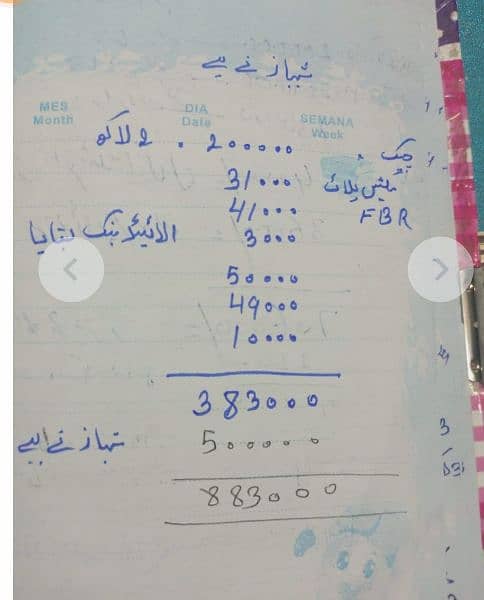 شہباز نے لیے
MES DIA SEMANA
Month Date Week
چیک . 200000 . 2 لاکھ
31000
41000 FBR
3000 الائیڈ بنک بقایا
50000
49000
10000
383000
500000 شہباز نے لیے
883000